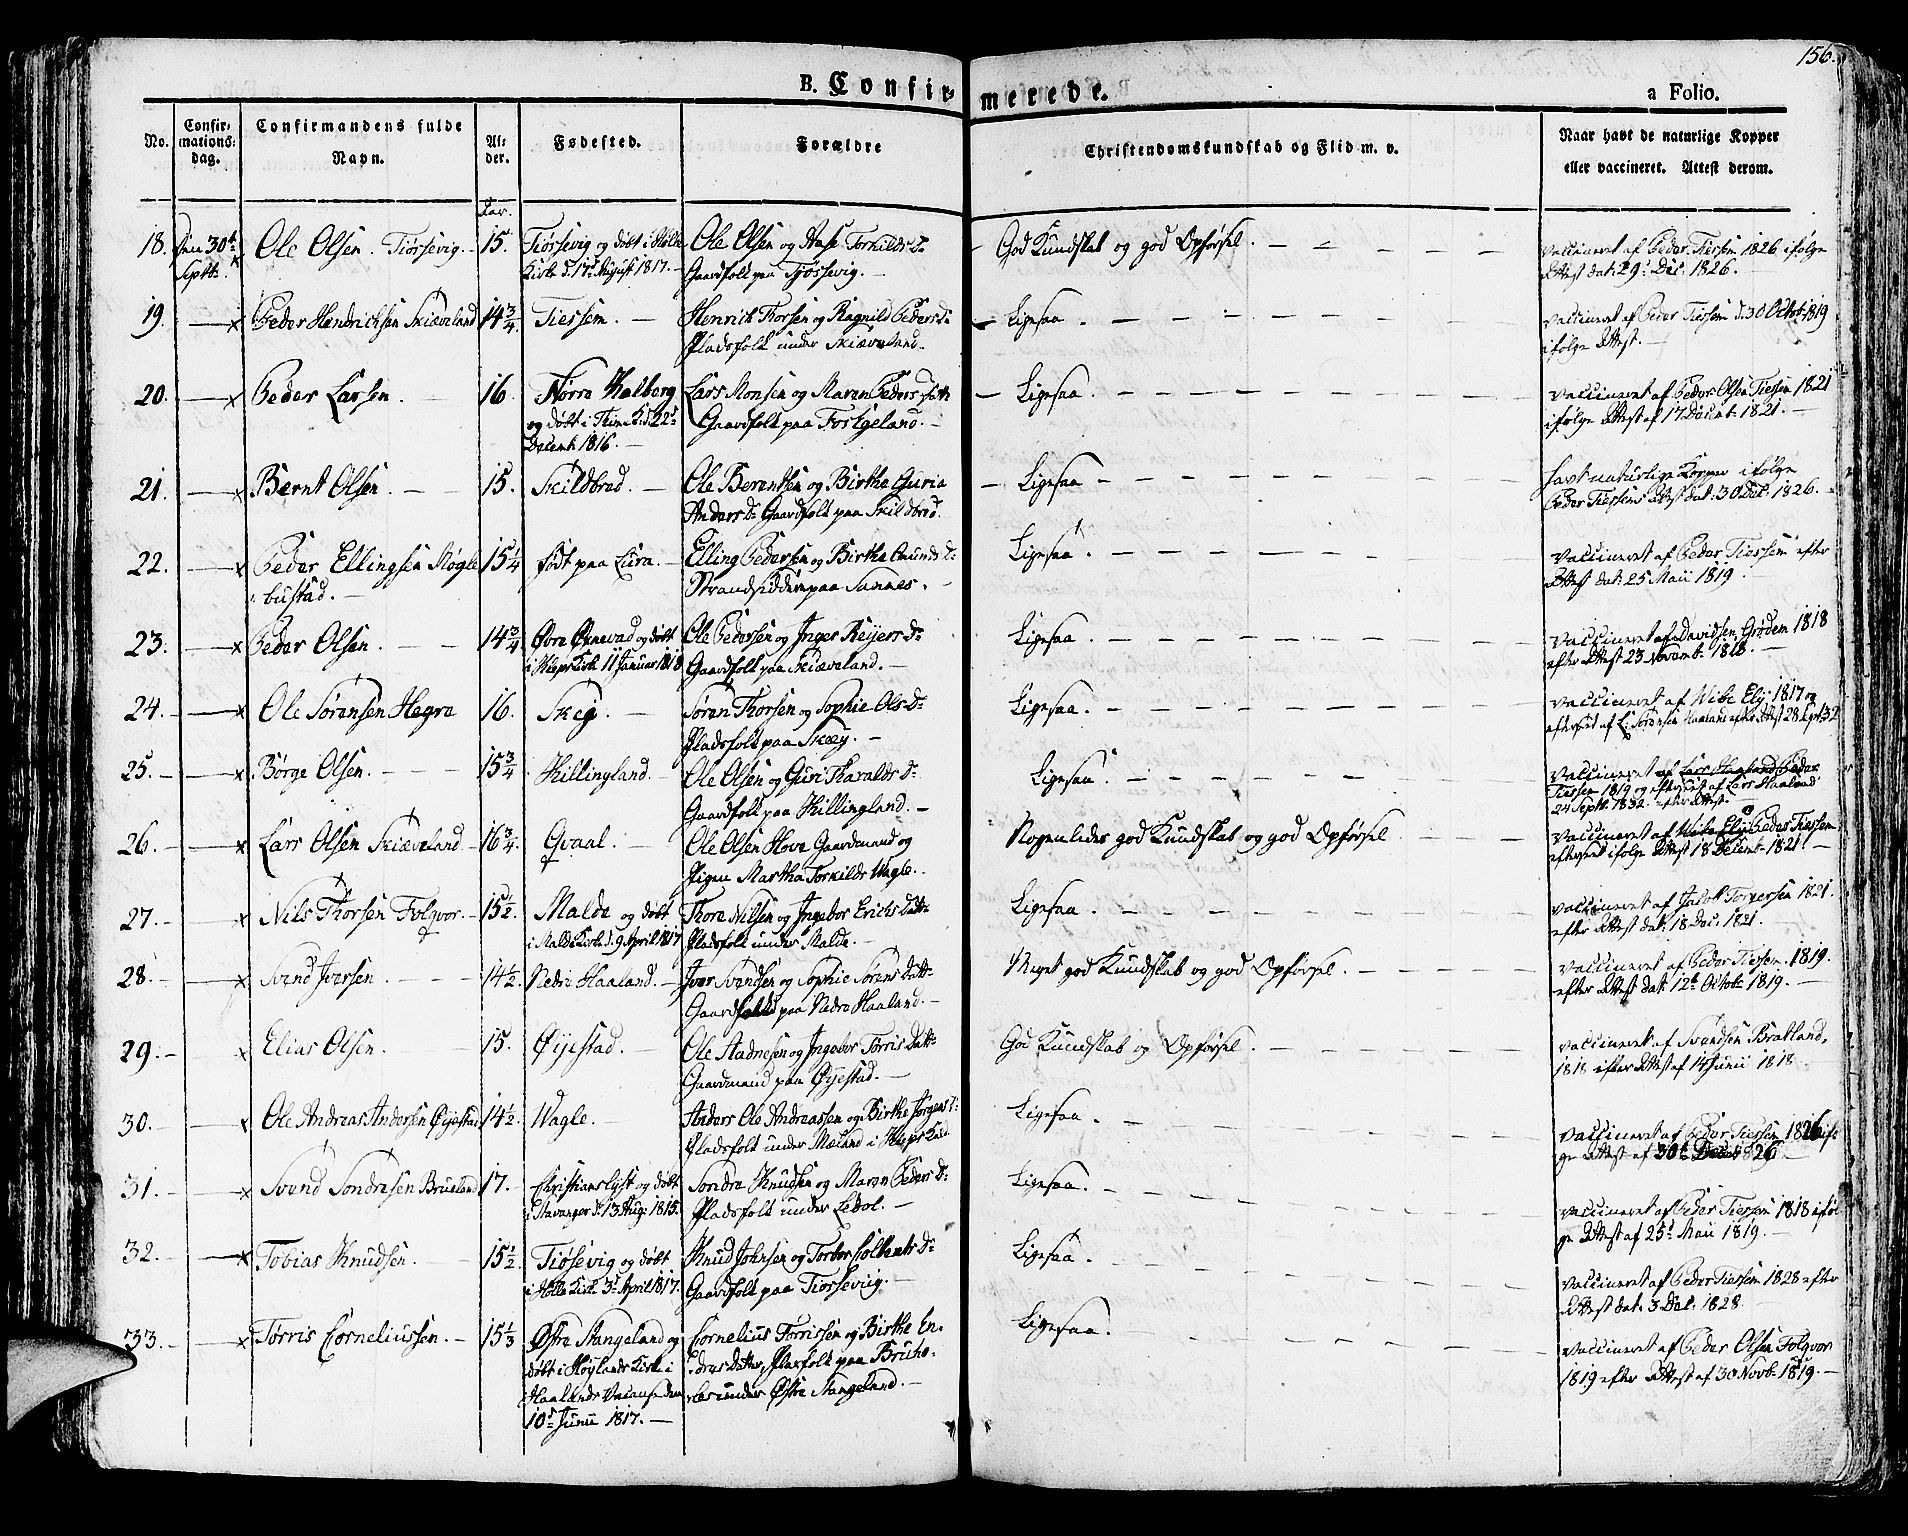 156.
B. Confir- merede. a Folio.
No. Confir-mations-dag. Confirmandens fulde Navn. Al-der. Fødested. Forældre Christendomskundskab og Flid m. v. Naar havt de naturlige Kopper eller vaccineret. Attest derom.
Aar.
18. Den 30te Septbr. Ole Olsen Tiørsevig 15. Tiørsevig og døbt i Holle Kirke d. 17d August 1817. Ole Olsen og Aase Torkilds D. Gaardfolk paa Tjørsevig. God Kundskab og god Opførsel. Vaccineret af Peder Tiessen 1826 ifølge Attest dat: 29d Dec. 1826.
19. Peder Hendrichsen Skiæveland 14 3/4 Tiessem. Henrich Thorsen og Ragnild Peders D. Pladsfolk under Skiæveland. Ligesaa. Vaccineret af Peder Tiessem d. 30 Octob: 1819 ifølge Attest.
20. Peder Larsen. 16. Nørre Kalberg og døbt i Thime K. d. 22d Decemb. 1816. Lars Monsen og Maren Peders Datt: Gaardfolk paa Fosseland. Ligesaa Vaccineret af Peder Olsen Tiessem 1821 ifølge Attest af 17 Decemb: 1821.
21. Bernt Olsen. 15. Skildbred. Ole Berentsen og Birtha Guria Anders D. Gaardfolk paa Skildbred. Ligesaa havt naturlige Kopper ifølge Peder Tiessems Attest dat: 30 Dec: 1826.
22. Peder Ellingsen Nøgle bustad. 15 1/4 født paa Lura. Elling Pedersen og Birtha Amunds D. Strandsiddere paa Sannes. Ligesaa Vaccineret af Peder Tiessem efter Attest dat: 25 Maii 1819.
23. Peder Olsen. 14 3/4 Øvre Øxnevad og døbt i Kleps Kirke 11 Januar 1818 Ole Pedersen og Inger Reiers D. Gaardfolk paa Skiæveland. Ligesaa. Vaccineret af Davidsen Grødem 1818 efter Attest 23 Novemb: 1818.
24. Ole Sørensen Hegre 16. Skeij. Søren Thorsen og Sophie Ols D. Pladsfolk paa Skæy. Ligesaa. Vaccineret af Wibe Elg: 1817 og efterseet af L. Sørensen Haaland efter Attest 28 Apr: 32
25. Børge Olsen. 15 3/4 Killingland. Ole Olsen og Guri Tharalds D. Gaardfolk paa Killingland. Ligesaa Vaccineret af Lars Haaland Peder Tiessem 1819 og efterseet af Lars Haaland 24 Septb: 1832 efter Attest.
26. Lars Olsen Skiæveland 16 3/4 Qvaal. Ole Olsen Hove Gaardmand og Pigen Martha Torkilds Wagle. Nogenledes god Kundskab og god Opførsel Vaccineret af Wibe Elg: Peder Tiessem efterseet ifølge Attest 18 Decemb: 1821
27. Nils Thorsen Folqvor. 15 1/2. Malde og døbt i Malde Kirke d. 9 April 1817 Thore Nilsen og Ingebor Erichs Datt: Pladsfolk under Malde. Ligesaa. Vaccineret af Jacob Torgersen 1821. efter Attest dat: 18 Dec. 1821.
28. Svend Iversen. 14 1/2. Nedre Haaland. Iver Svendsen og Sophie Sørens Datt: Gaardfolk paa Nedre Haaland. Meget god Kundskab og god Opførsel. Vaccineret af Peder Tiessem. 1819. efter Attest dat: 12te Octob: 1819.
29. Elias Olsen. 15. Øijestad. Ole Aadnesen og Ingebor Tørris Datt: Gaardmand paa Øijestad. God Kundskab og Opførsel. Vaccineret af Svendsen Bratland, 1818 efter Attest af 14 Junii 1818
30. Ole Andreas Andersen Øijestad 14 1/2 Wagle. Anders Ole Andreassen og Birthe Jørgens D: Pladsfolk under Mæland i Kleps Kald Ligesaa. Vaccineret af Peder Tiessem 1826 ifølge Attest af 30te Decemb 1826
31. Svend Sondresen Brueland 17. Christianslyst og døbt i Stavanger d. 13 Aug: 1815. Sondre Knudsen og Maren Peders D. Pladsfolk under Ledol. Ligesaa. Vaccineret af Peder Tiessem 1818 ifølge Attest af 25d Maii 1819.
32. Tobias Knudsen. 15 1/2. Tiøsevig og døbt i Holle Kirke 3d April 1817. Knud Johnsen og Torbor D. Gaardfolk paa Tiørsevig. Ligesaa Vaccineret af Peder Tiessem 1828 efter Attest dat: 3 Dec. 1828.
33. Tørris Corneliussen. 15 1/3 Østre Stangeland og døbt i Høylands Kirke i Haalands Vacance den 10d Junii 1817. Cornelius Tørrissen og Birthe En-dres datter, Pladsfolk paa under Østre Stangeland. Ligesaa. Vaccineret af Peder Olsen Folqvor 1819 efter Attest af 30 Novb: 1819.